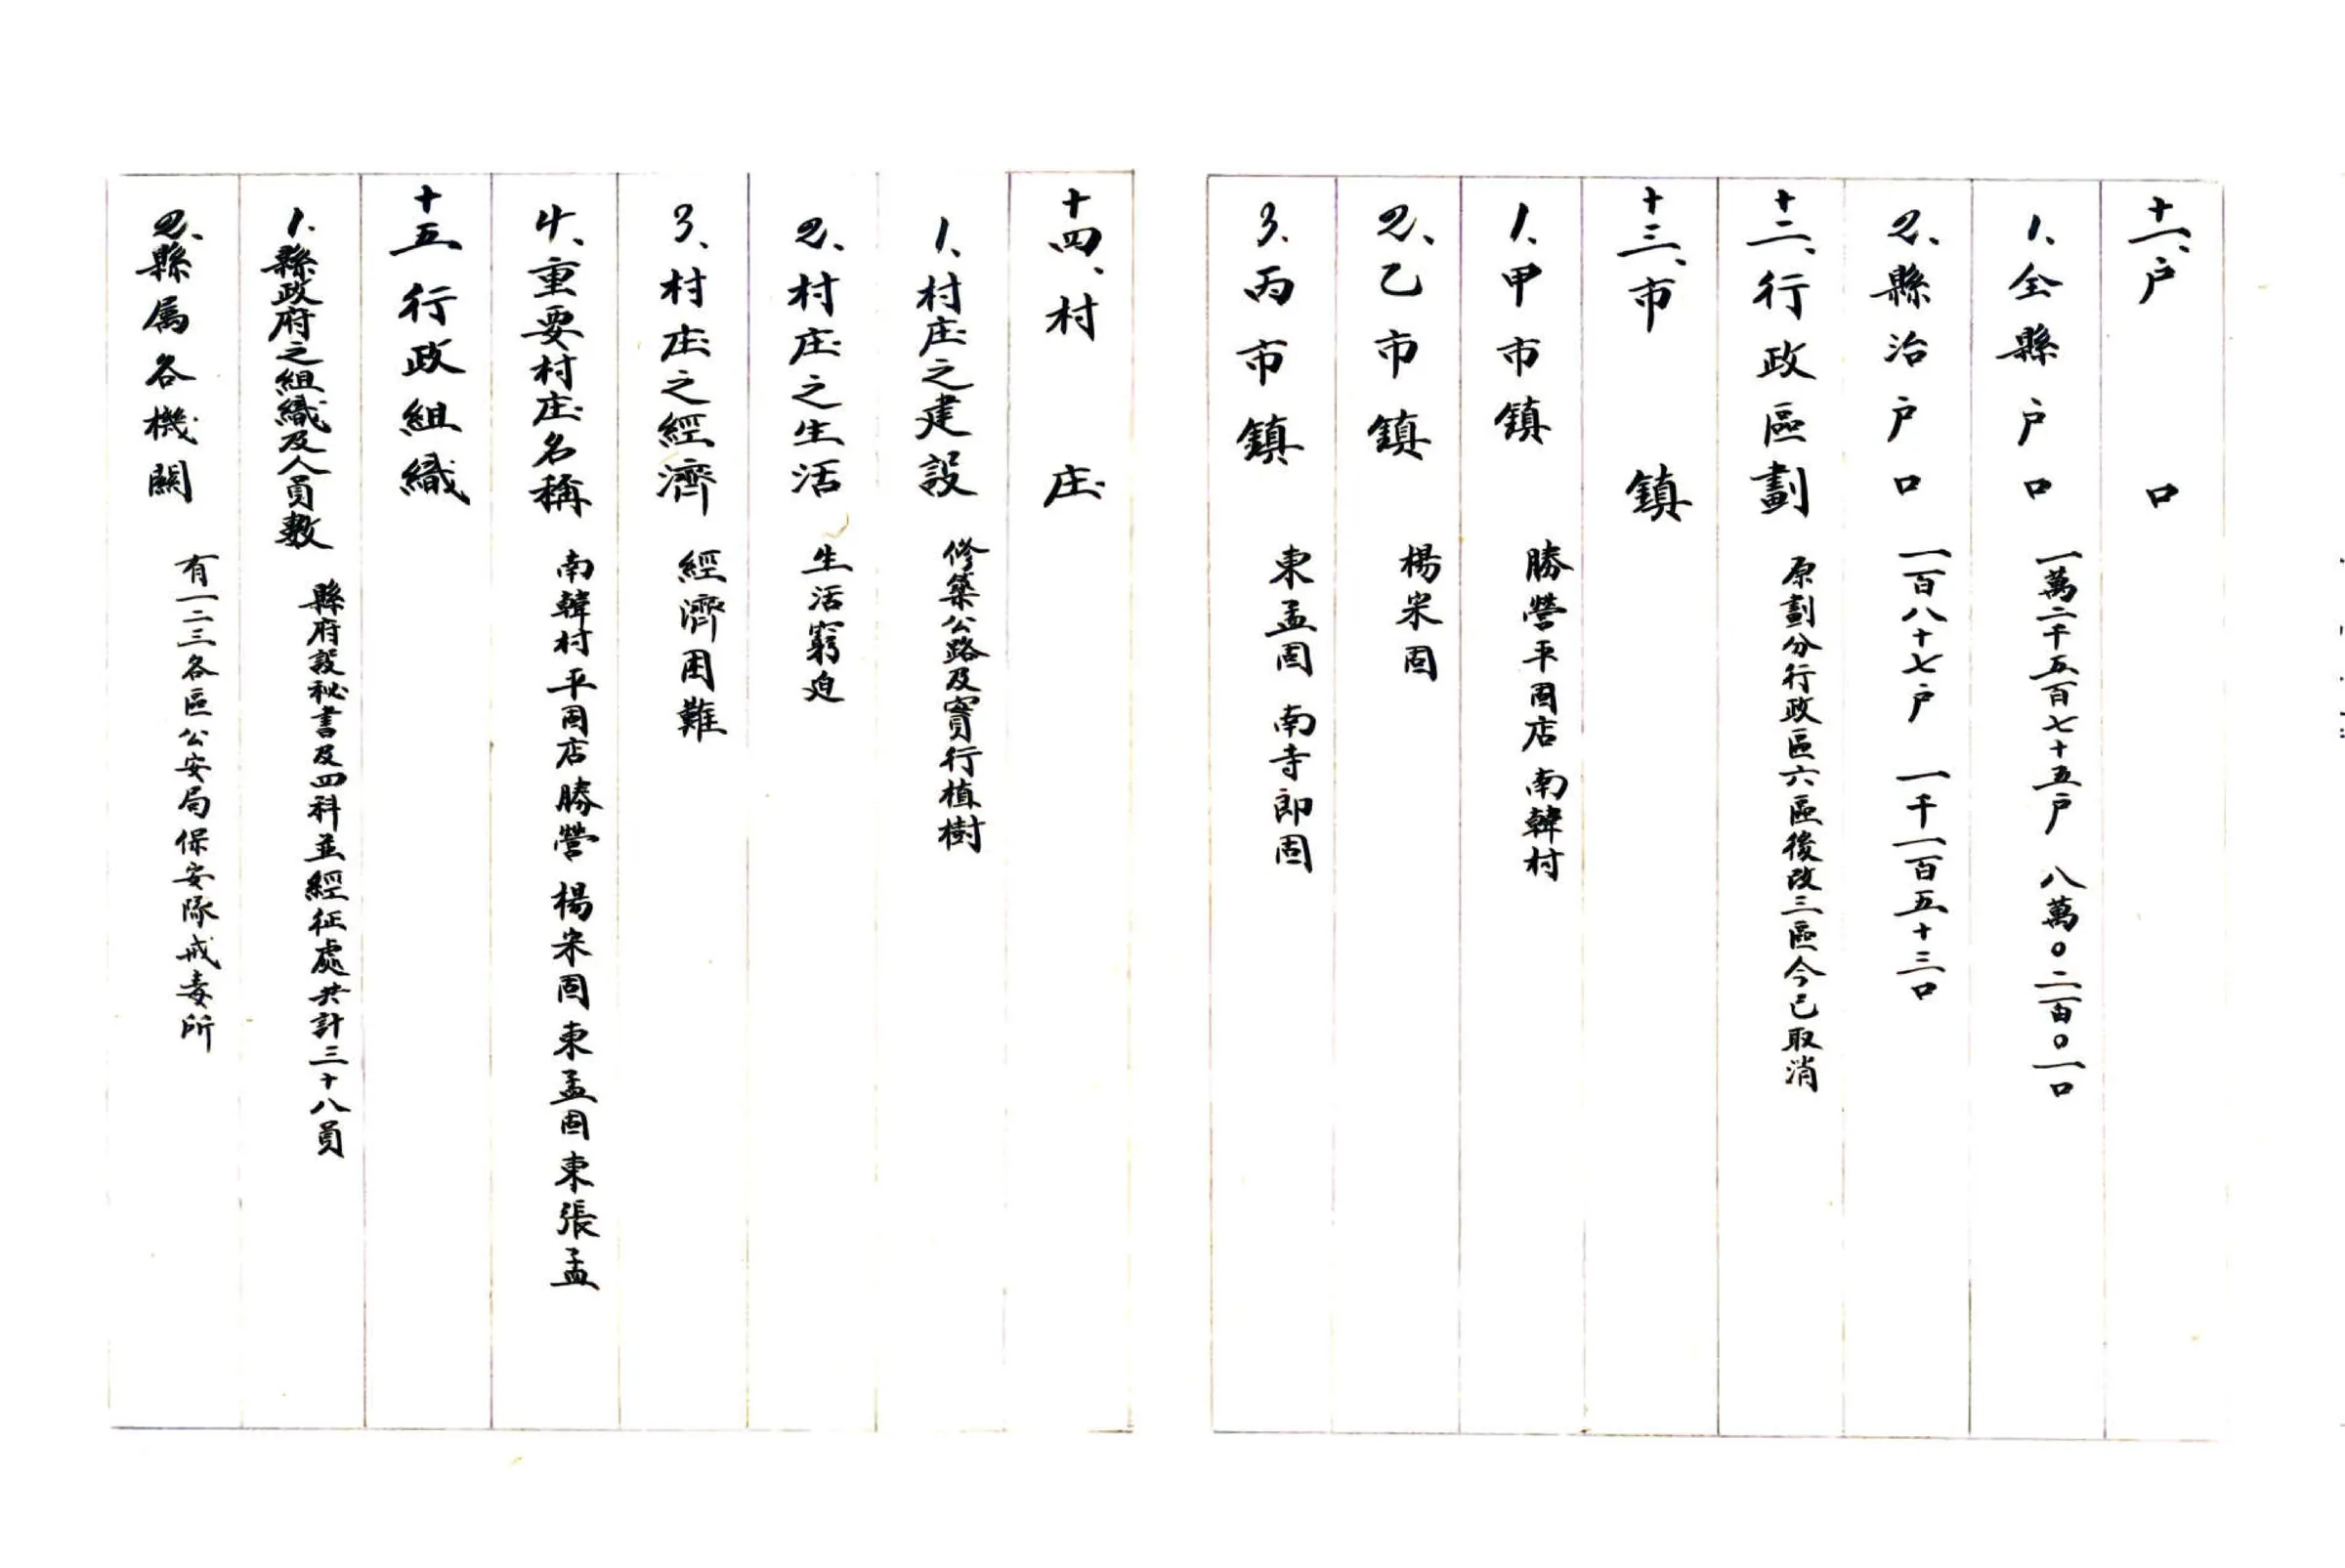 十一、户口
1、全縣户口 一萬二千五百七十五户 八萬〇二百〇一口
2、縣治户口 一百八十七户 一千一百五十三口
十二、行政區劃 原劃分行政區六區後改三區今已取消
十三、市鎮
1、甲市鎮 勝營平固店 南韓村
2、乙市鎮 楊宋固
3、丙市鎮 東孟固 南寺郎固
十四、村庄
1、村庄之建設 修築公路及實行植樹
2、村庄之生活 生活窮迫
3、村庄之經濟 經濟困難
4、重要村庄名稱 南韓村平固店勝營 楊宋固東孟固東張孟
十五 行政組織
1、縣政府之組織及人員數 縣府設秘書及四科並經征處共計三十八員
2、縣属各機關 有一二三各區公安局保安隊戒毒所